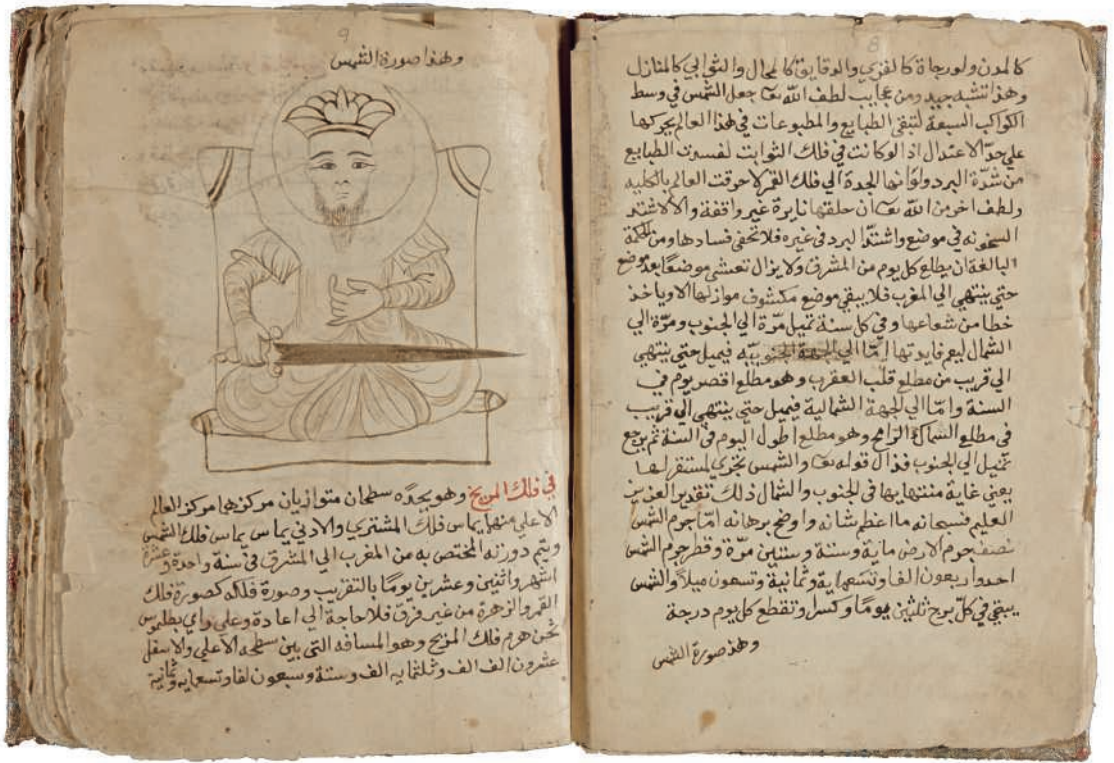 8
كالمدن والدرجاة كالقري والدقايق كالمحال والثواني كالمنازل
وهذا تشبه جيد ومن عجايب لطف الله تعا جعل الشمس في وسط
الكواكب السبعة لتبقي الطبايع والمطبوعات في هذا العالم بحركها
علي حد الاعتدال اذ لو كانت في فلك الثوابت لفسدت الطبايع
من شدة البرد ولو انها الي فلك القمر لاحرقت العالم بالكليه
ولطف اخر من الله تعا ان خلقها نايرة غير واقفة والا لاشتد
السخونه في موضع واشتد البرد في غيره فلا تخفي فسادها ومن الحكمة
البالغة ان يطلع كل يوم من المشرق ولا يزال تعشي موضعا بعد موضع
حتي ينتهي الي المغرب فلا يبقي موضع مكشوف موازلها الا وياخذ
خطا من شعاعها وفي كل سنة تميل مرة الي الجنوب ومرة الي
الشمال ليعم فايدتها اما الي الجهة الجنوبيه فيميل حتي ينتهي
الي قريب من مطلع قلب العقرب وهو مطلع اقصر يوم في
السنة واما الي لجهة الشمالية فيميل حتي ينتهي الي قريب
في مطلع السماك الرامح وهو مطلع اطول اليوم في السنة ثم يرجع
تميل الي الجنوب فذال قوله تعا والشمس تجري لمستقر لها
يعني غاية منتهايها في الجنوب والشمال ذلك تقدير العزيز
العليم فسبحانه ما اعظم شانه واوضح برهانه اما جرم الشمس
نصف جرم الارض ماية وستة وستين مرة وقطر جرم الشمس
احد واربعون الفا وتسعماية وثمانية وتسعون ميلا والشمس
يبقي في كل برج ثلثين يوما وكسرا وتقطع كل يوم درجة
وهذ صورة الشمس
9
وهذا صورة الشمس
في فلك المريخ وهو يحده سطحان متوازيان مركزها مركز العالم
الاعلي منها يماس فلك المشتري والادني يماس يماس فلك الشمس
ويتم دورته المختص به من المغرب الي المشرق في سنة واحدة وعشرة
اشهر واثنين وعشرين يوما بالتقريب وصورة فلكه كصورة فلك
القمر والزهرة من غير فرق فلا حاجة الي اعادة وعلي راي بطلميوس
ثخن هرم فلك المريخ وهو المسافه التي بين سطحه الاعلي والاسفل
عشرون الف الف وثلثمايه الف وستة وسبعون لفا وتسعمايه وثمانية